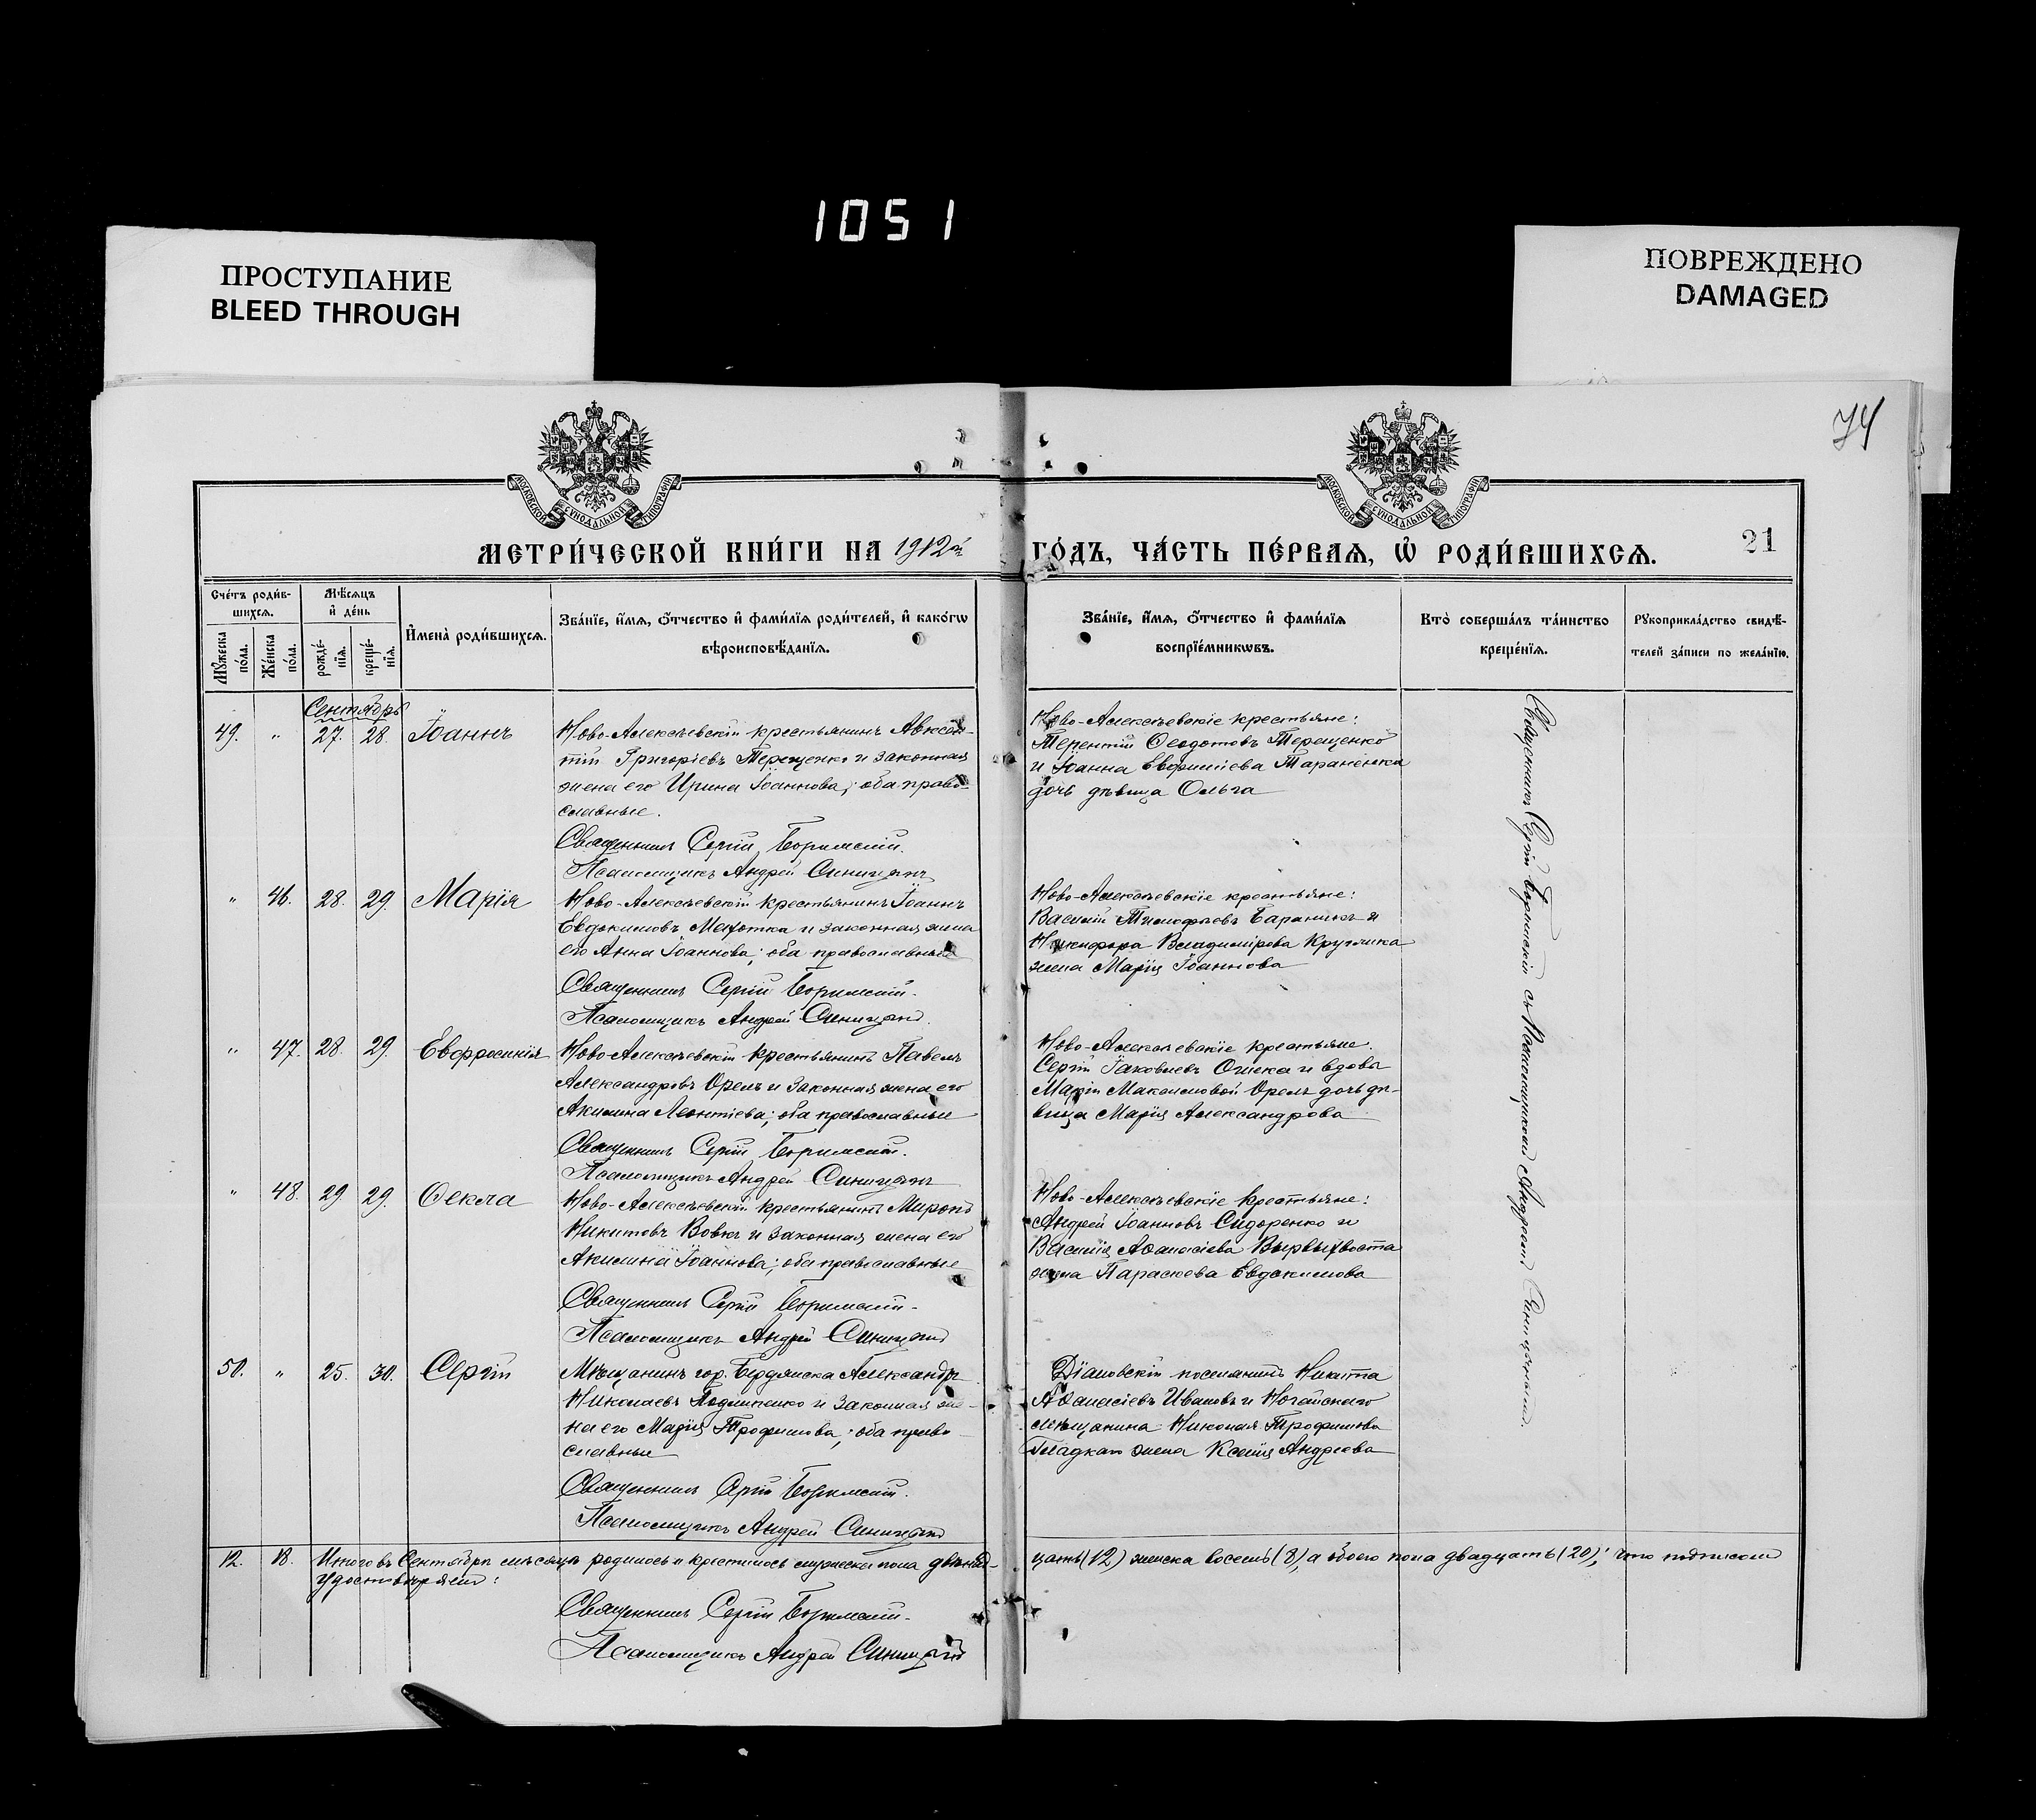 1051
ПРОСТУПАНИЕ
BLEED THROUGH
ПОВРЕЖДЕНО
DAMAGED
74
МОСКОВСКОЙ СѴНОДАЛЬНОЙ ТИПОГРАФІИ
МОСКОВСКОЙ СѴНОДАЛЬНОЙ ТИПОГРАФІИ
МЕТРИ́ЧЕСКОЙ КНИ́ГИ НА 1912й ГО́ДЪ, ЧА́СТЬ ПЕ́РВАѦ, Ѡ҆ РОДИ́ВШИХСѦ. 21
Сче́тъ роди́в-
шихсѧ.
Мꙋ́жеска по́ла.
Же́нска по́ла.
Мѣ́сѧцъ и҆ де́нь
рожде́-
нїѧ.
креще́-
нїѧ.
И҆мена̀ роди́вшихсѧ.
Зва́нїе, и҆́мѧ, ѻ҆́тчество и҆ фами́лїѧ роди́телей, и҆ како́гѡ
вѣроисповѣ́данїѧ.
Зва́нїе, и҆́мѧ, ѻ҆́тчество и҆ фами́лїѧ
воспрїе́мникѡвъ.
Кто̀ соверша́лъ та́инство
креще́нїѧ.
Рꙋкоприкла́дство свидѣ́-
телей за́писи по жела́нїю.
Сентябрь
49. " 27. 28. Іоаннъ
Ново-Алексѣевскій крестьянинъ Авксен-
тій Григоріевъ Терещенко и законная
жена его Ирина Іоаннова; оба право-
славные.
Священникъ Сергій
Псаломщикъ Андрей Синицынъ
Ново-Алексѣевскіе крестьяне:
Терентій Ѳеодотовъ Терещенко
и Іоанна Евфиміева Тараненка
дочь дѣвица Ольга
" 46. 28. 29. Марія
Ново-Алексѣевскій крестьянинъ Іоаннъ
Евдокимовъ Махотка и законная жена
его Анна Іоаннова; оба православные
Священникъ Сергій
Псаломщикъ Андрей Синицынъ.
Ново-Алексѣевскіе крестьяне:
Василій Тимофѣевъ Баранникъ и
Никифора Владимірова Круглика
жена Марія Іоаннова
" 47. 28. 29. Евфросинія
Ново-Алексѣевскій крестьянинъ Павелъ
Александровъ Орелъ и законная жена его
Акилина Леонтіева; оба православные
Священникъ Сергій
Псаломщикъ Андрей Синицынъ
Ново-Алексѣевскіе крестьяне.
Сергій Іаковлевъ и вдовы
Маріи Максимовой Орелъ дочь дѣ-
вица Марія Александрова
" 48. 29 29. Ѳекла
Ново-Алексѣевскій крестьянинъ Миронъ
Никитовъ Вовкъ и законная жена его
Акилина Іоаннова; оба православные
Священникъ Сергій
Псаломщикъ Андрей Синицынъ
Ново-Алексѣевскіе крестьяне:
Андрей Іоанновъ Сидоренко и
Василія Аѳанасіева Вырвыхвоста
жена Параскева Евдокимова
50. " 25. 30. Сергій
Мѣщанинъ гор. Бердянска Александръ
Николаевъ и законная же-
на его Марія Трофимова; оба право-
славные
Священникъ Сергій
Псаломщикъ Андрей Синицынъ
Діановскій поселянинъ Никита
Аѳанасіевъ Ивановъ и Ногайскаго
мѣщанина Николая Трофимова
Гладкаго жена Ксенія Андреева
Священникъ Сергій съ Псаломщикомъ Андреемъ Синицынымъ.
12. 8. Итого въ Сентябрѣ мѣсяцѣ родилось и крестилось мужеска пола двѣнад-
цать (12) женска восемь (8), а обоего пола двадцать (20); что подписомъ
удостовѣряемъ:
Священникъ Сергій
Псаломщикъ Андрей Синицынъ